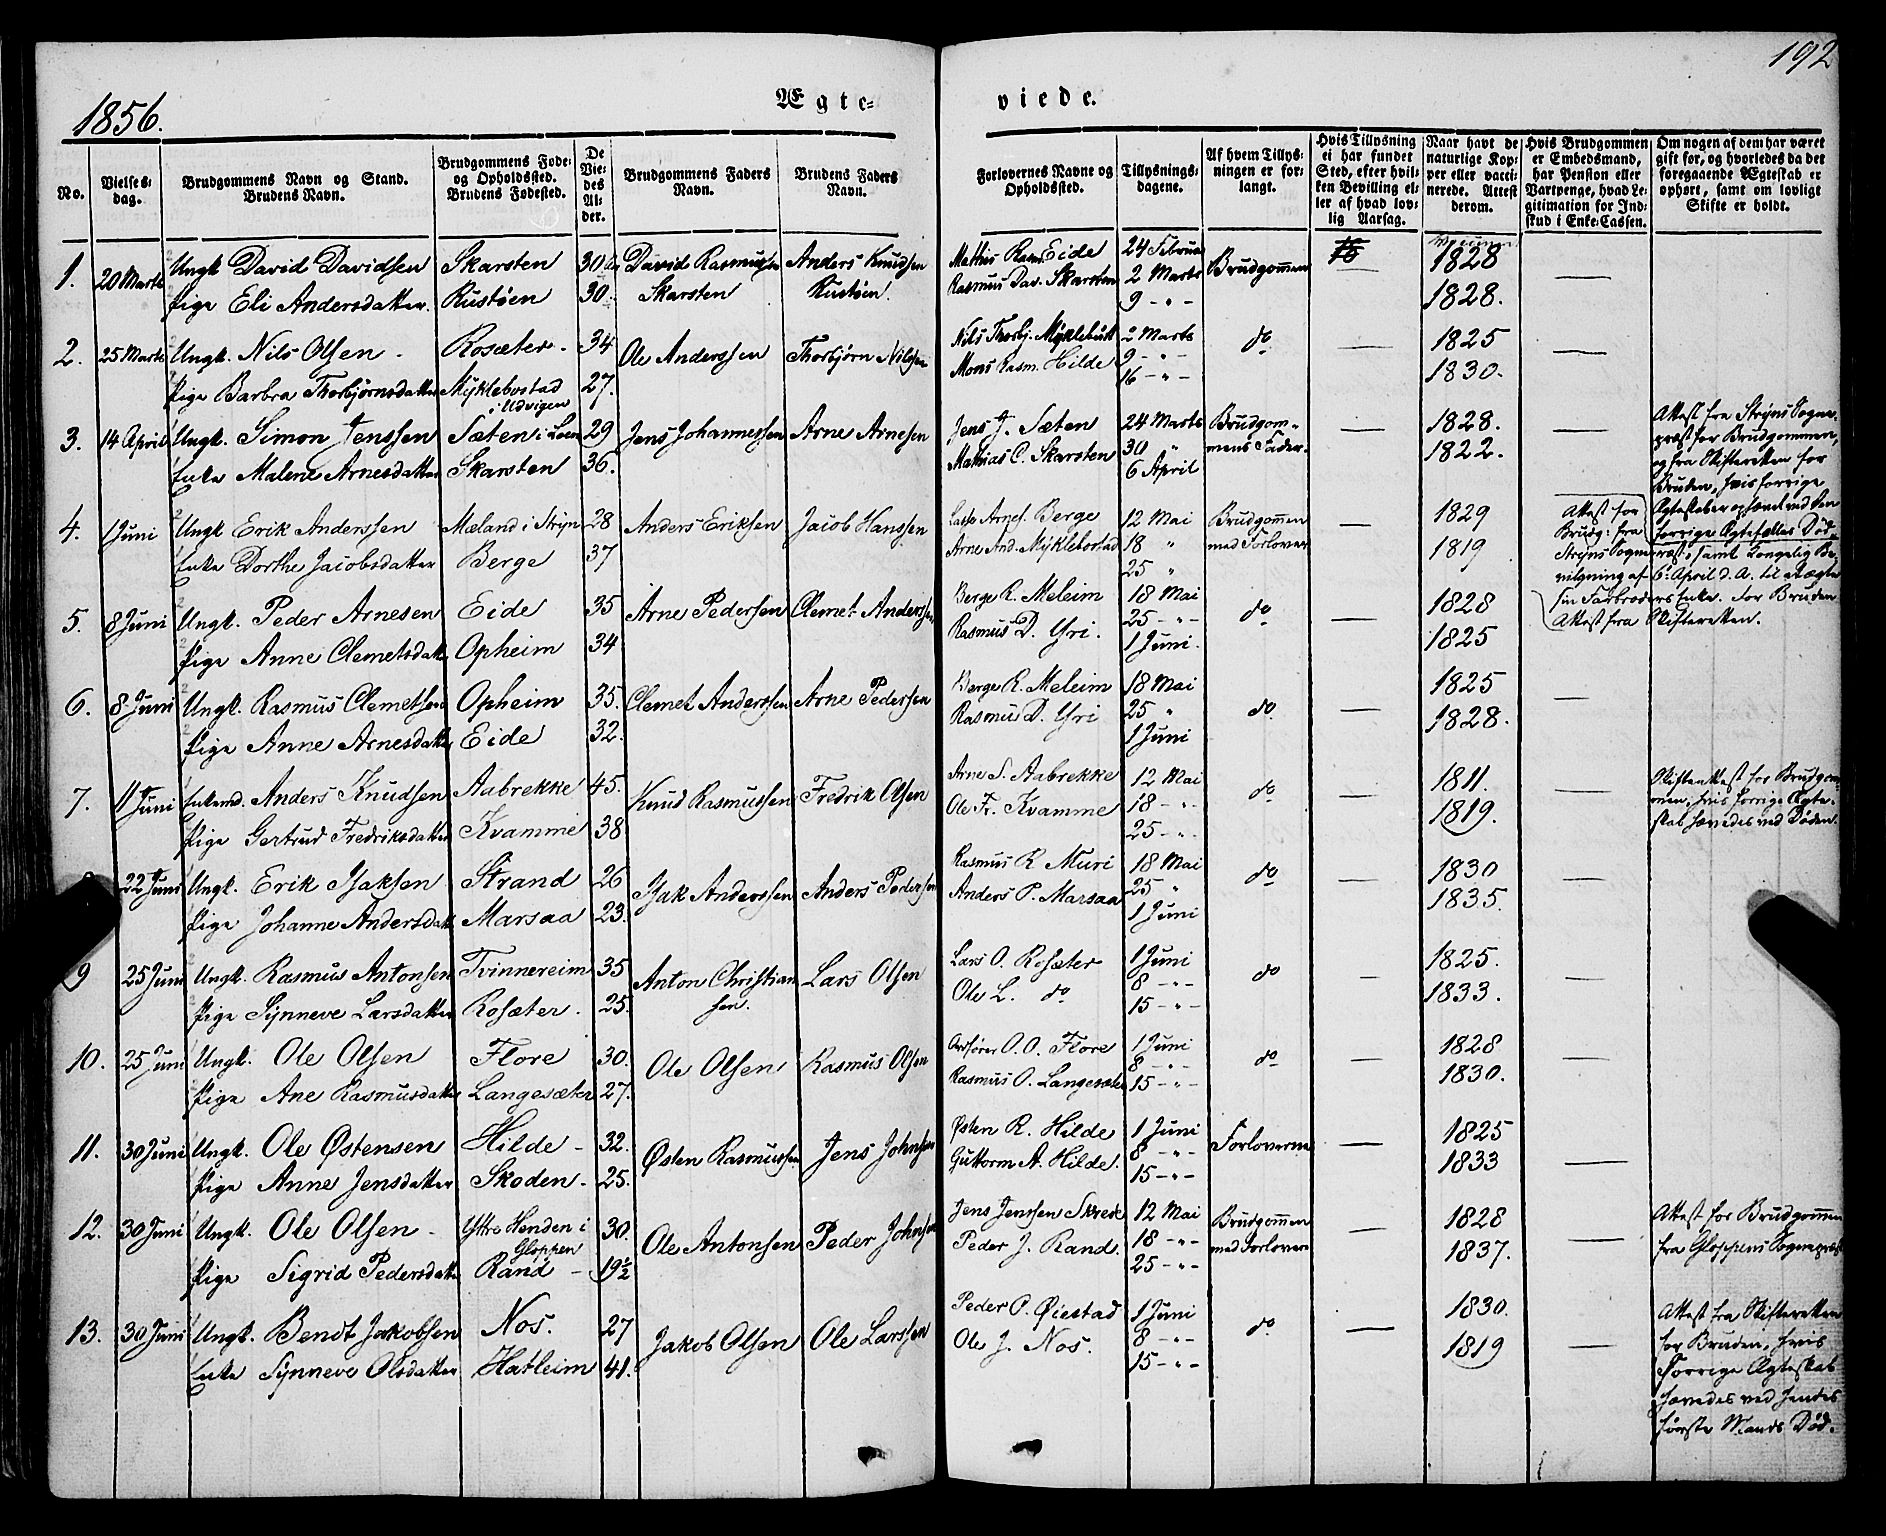 192
1856.
Ægte-
viede.
No.
Vielses-
dag.
Brudgommens Navn og Stand.
Brudens Navn.
Brudgommens Føde-
og Opholdssted.
Brudens Fødested.
De
Vie-
des
Al-
der.
Brudgommens Faders
Navn.
Brudens Faders
Navn.
Forlovernes Navne og
Opholdssted.
Tillysnings-
dagene.
Af hvem Tillys-
ningen er for-
langt.
Hvis Tillysning
ei har fundet
Sted, efter hvil-
ken Bevilling el-
ler af hvad lov-
lig Aarsag.
Naar havt de
naturlige Kop-
per eller vacci-
nerede. Attest
derom.
Hvis Brudgommen
er Embedsmand,
har Pension eller
Vartpenge, hvad Le-
gitimation for Ind-
skud i Enke-Cassen.
Om nogen af dem har været
gift før, og hvorledes da det
foregaaende Ægteskab er
ophørt, samt om lovligt
Skifte er holdt.
1. 20 Marts Ungk David Davidsen Skarsten 30 David Rasmussen Anders Knudsen Mathis Rasm. Eide 24 Februar Brudgommen — 1828 —
Pige Eli Andersdatter. Rustøen 30. Skarsten Rustøen. Rasmus Dav. Skarsten 2 Marts 1828.
9 - " -
2. 25 Marts Ungk. Nils Olsen - Rosæter - 34 Ole Anderssen Thorbjørn Nilssen Nils Thorbj. Myklebust 2 Marts do — 1825 —
Pige Barbra Thorbjørnsdatter Myklebostad 27. Mons Rasm. Hilde 9 - " - 1830.
i Udvigen 16 - " -
3. 14 April Ungk. Simon Jenssen Sæten i Loen 29 Jens Johannessen Arne Arnesen Jens J. Sæten 24 Marts Brudgom- — 1828. — Attest fra Stryns Sogne-
Enke Malene Arnesdatter Skarsten 36. Mathias C. Skarsten 30 " mens Fader. 1822. præst for Brudgommen,
6 April og fra Skifteretten for
Bruden, hvis forrige
4. 1 Juni Ungk Erik Anderssen Mæland i Stryn 28 Anders Eriksen Jacob Hanssen Lasse Arnes. Berge 12 Mai Brudgommen — 1829 Attest for Ægteskab er ophævet ved den
Enke Dorthe Jacobsdatter Berge 37 Arne And. Myklebostad 18 " med Forlover 1819 Brudg: fra forrige Ægtefælles Død
25 " Stryns Sognepræst, samt Kongelig Be-
vilgning af 6 April d. A. til at ægte
5. 8 Juni Ungk. Peder Arnesen Eide 35 Arne Pedersen Clemet Anderssen Berge R. Meleim 18 Mai do — 1828 sin Farbroders Enke. For Bruden
Pige Anne Clemetsdatter Opheim 34 Rasmus D. Yri. 25 - " - 1825 Attest fra Skifteretten.
1 Juni.
6. 8 Juni Ungk. Rasmus Clemetsen Opheim 35. Clemet Anderssen Arne Pedersen Berge R. Meleim 18 Mai do — 1825 —
Pige Anne Arnesdatter Eide 32. Rasmus D. Yri 25 " 1828.
1 Juni
7. 11 Juni Enkemd. Anders Knudsen Aabrekke 45. Knud Rasmussen Fredrik Olsen Arne S. Aabrekke 12 Mai do — 1811. — Skifteattest for Brudgom-
Pige Gertrud Fredriksdatter Kvamme 38 Ole Fr. Kvamme 18 - " - 1819. men, hvis forrige Ægte-
25 - " - skab hævedes ved Døden.
22 Juni Ungk. Erik Isaksen Strand 26 Isak Anderssen Anders Pedersen Rasmus R Muri 18 Mai do — 1830 —
Pige Johanne Andersdatt Marsaa 23. Anders P. Marsaa 25 " 1835.
1 Juni
9 25 Juni Ungk. Rasmus Antonsen Tvinnereim 35 Anton Christian Lars Olsen Lars O. Rosæter 1 Juni do — 1825. —
Pige Synneve Larsdatter Rosæter. 25. sen. Ole L. do 8 - " - 1833.
15 - " -
10. 25 Juni Ungk. Ole Olsen Flore 30. Ole Olsen Rasmus Olsen O. O. Flore 1 Juni do — 1828 —
Pige Ane Rasmusdatter Langesæter 27. Rasmus O. Langesæter 8 - " - 1830.
15 - " -
11. 30 Juni Ungk. Ole Østensen Hilde - 32. Østen Rasmussen Jens Johnsen Østen R. Hilde 1 Juni Forloverne — 1825 —
Pige Anne Jensdatter Skoden - 25. Guttorm A. Hilde. 8 - " - 1833
15 - " -
12. 30 Juni Ungk. Ole Olsen - Yttre Henden i 30. Ole Antonsen Peder Johnsen Jens Jenssen Skrede 12 Mai Brudgommen — 1828 — Attest for Brudgommen
Gloppen Peder J. Rand. 18 - " - med Forlovere 1837. fra Gloppens Sognepræst
Pige Sigrid Pedersdatter Rand - 19½ 25 - " -
13. 30 Juni Ungk. Bendt Jakobsen Nos. 27 Jakob Olsen Ole Larssen Peder P. Øiestad 1 Juni do — 1830. — Attest fra Skifteretten
Enke Synneve Olsdatter Hatleim 41. Ole J. Nos. 8 - " - 1819 for Bruden, hvis
15 - " - Forrige Ægteskab
hævedes ved hendes
første Mands Død.